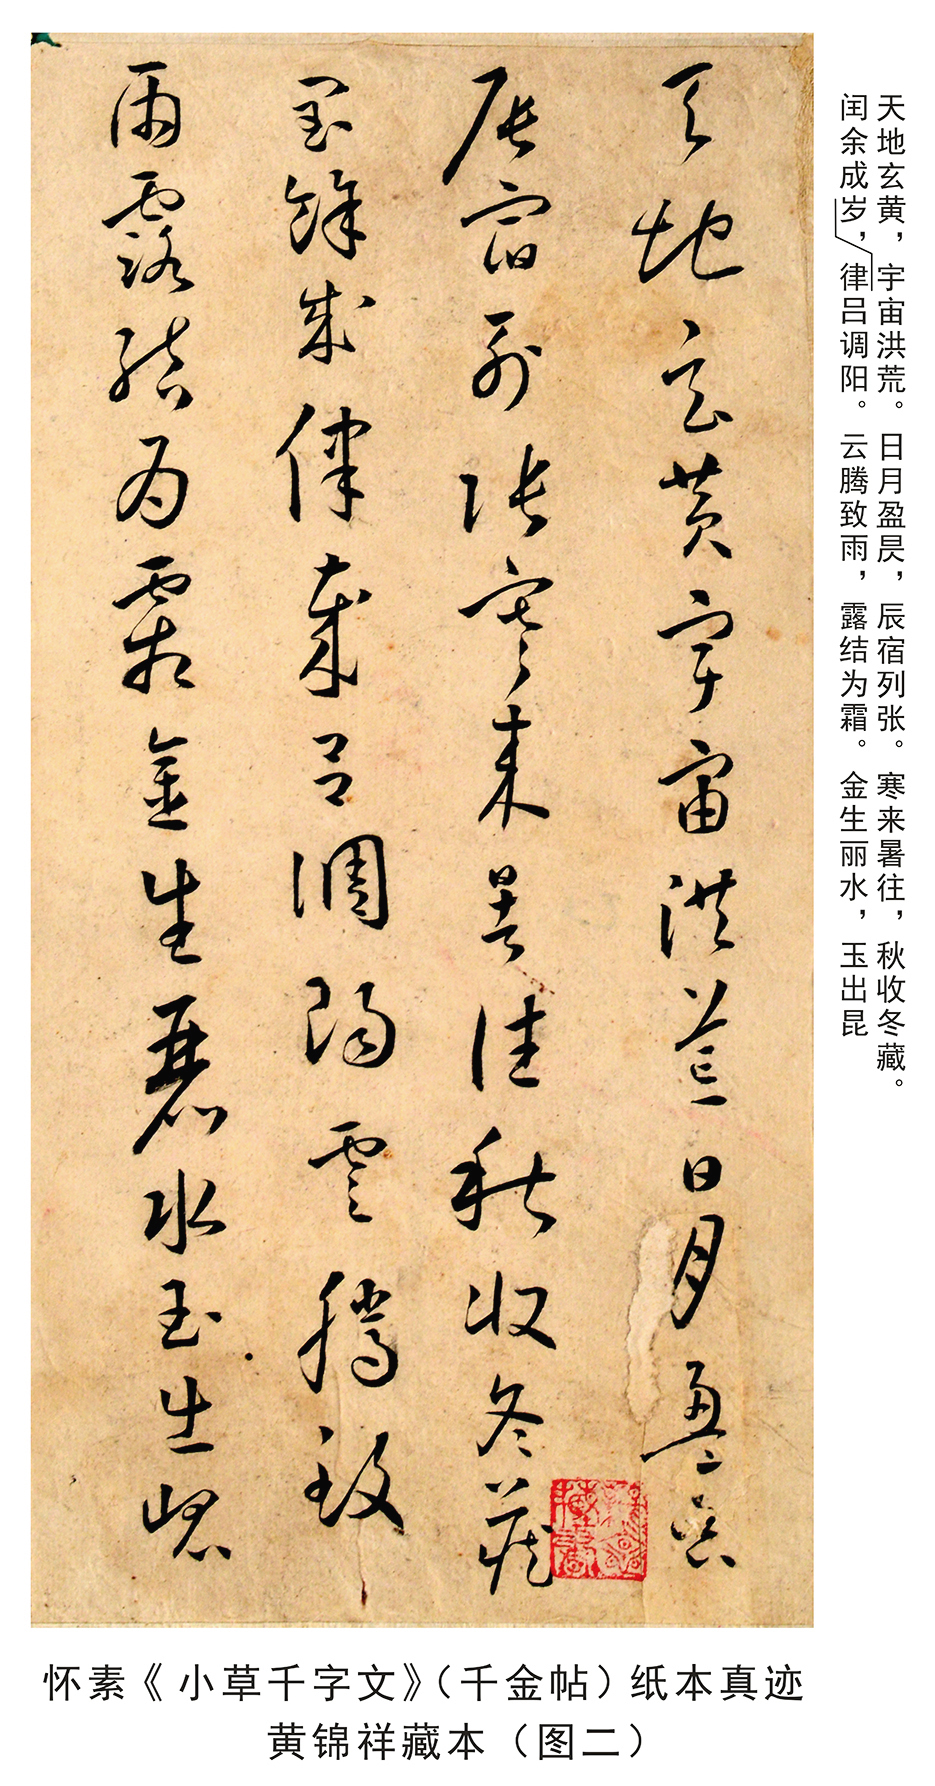 天地玄黄，宇宙洪荒。日月盈昃，辰宿列张。寒来暑往，秋收冬藏。
闰余成岁，律吕调阳。云腾致雨，露结为霜。金生丽水，玉出昆
天地玄黄宇宙洪荒日月盈昃
辰宿列張寒来暑往秋收冬藏
閏餘成律歲吕調陽雲騰致
雨露結為霜金生麗水玉出崑
怀素《小草千字文》（千金帖）纸本真迹
黄锦祥藏本（图二）